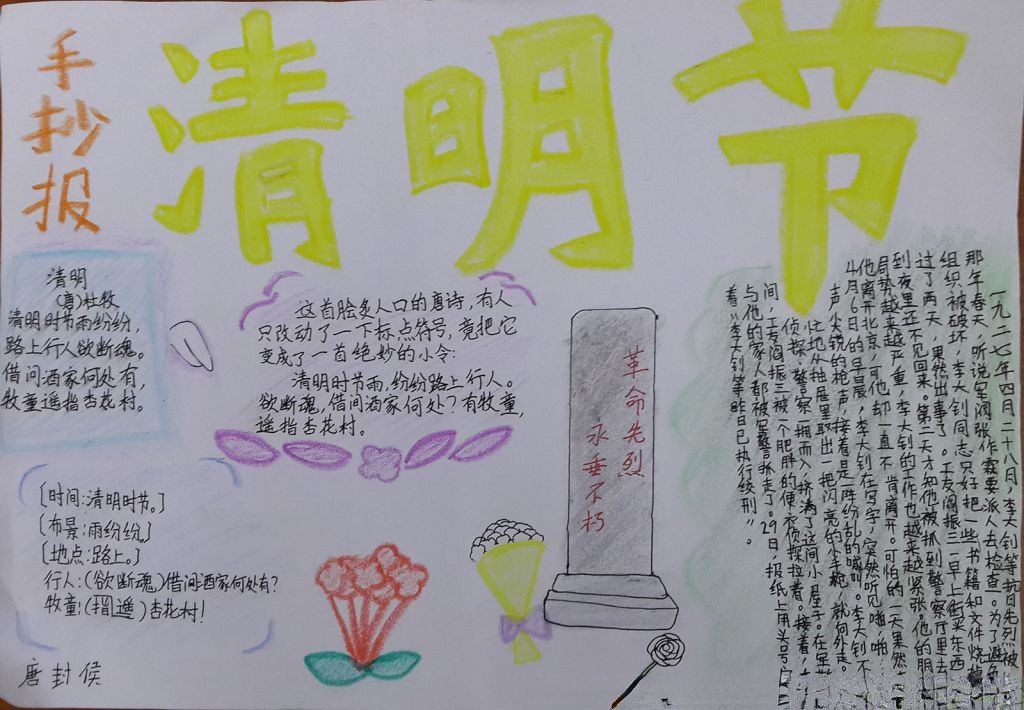 手抄报
清明节
清明
(唐)杜牧
清明时节雨纷纷,
路上行人欲断魂。
借问酒家何处有,
牧童遥指杏花村。
这首脍炙人口的唐诗,有人
只改动了一下标点符号,竟把它
变成了一首绝妙的小令:
清明时节雨,纷纷路上行人。
欲断魂,借问酒家何处?有牧童,
遥指杏花村。
[时间:清明时节。]
[布景:雨纷纷]
[地点:路上。]
行人:(欲断魂)借问酒家何处有?
牧童:(指遥)杏花村!
唐封侯
革命先烈
永垂不朽
一九二七年四月二十八日,李大钊等抗日先烈被
那年春天,听说军阀张作霖要派人去检查。为了避免
组织被破坏,李大钊同志只好把一些书籍和文件烧掉
过了两天,果然出事了。工友阎振三一早上街买东西
到夜里还不见回来。第二天才知他被抓到警察厅里去
局势越来越严重,李大钊的工作也越来越紧张。他的朋
他离开北京,可他却一直不肯离开。可怕的一天果然
4月6日的早晨,李大钊在写字,突然听见啪,啪…
声尖锐的枪声,接着是一阵纷乱的喊叫。李大钊不
忙地从抽屉里取出一把闪亮的小手枪,就向外走。
侦探,警察一拥而入,挤满了这间小屋子。在里
间,工友阎振三被一个肥胖的便衣侦探拉着。接着,
与他的家人都被军警抓走了。29日,报纸上用头号字
着“李大钊等昨日已执行绞刑”。